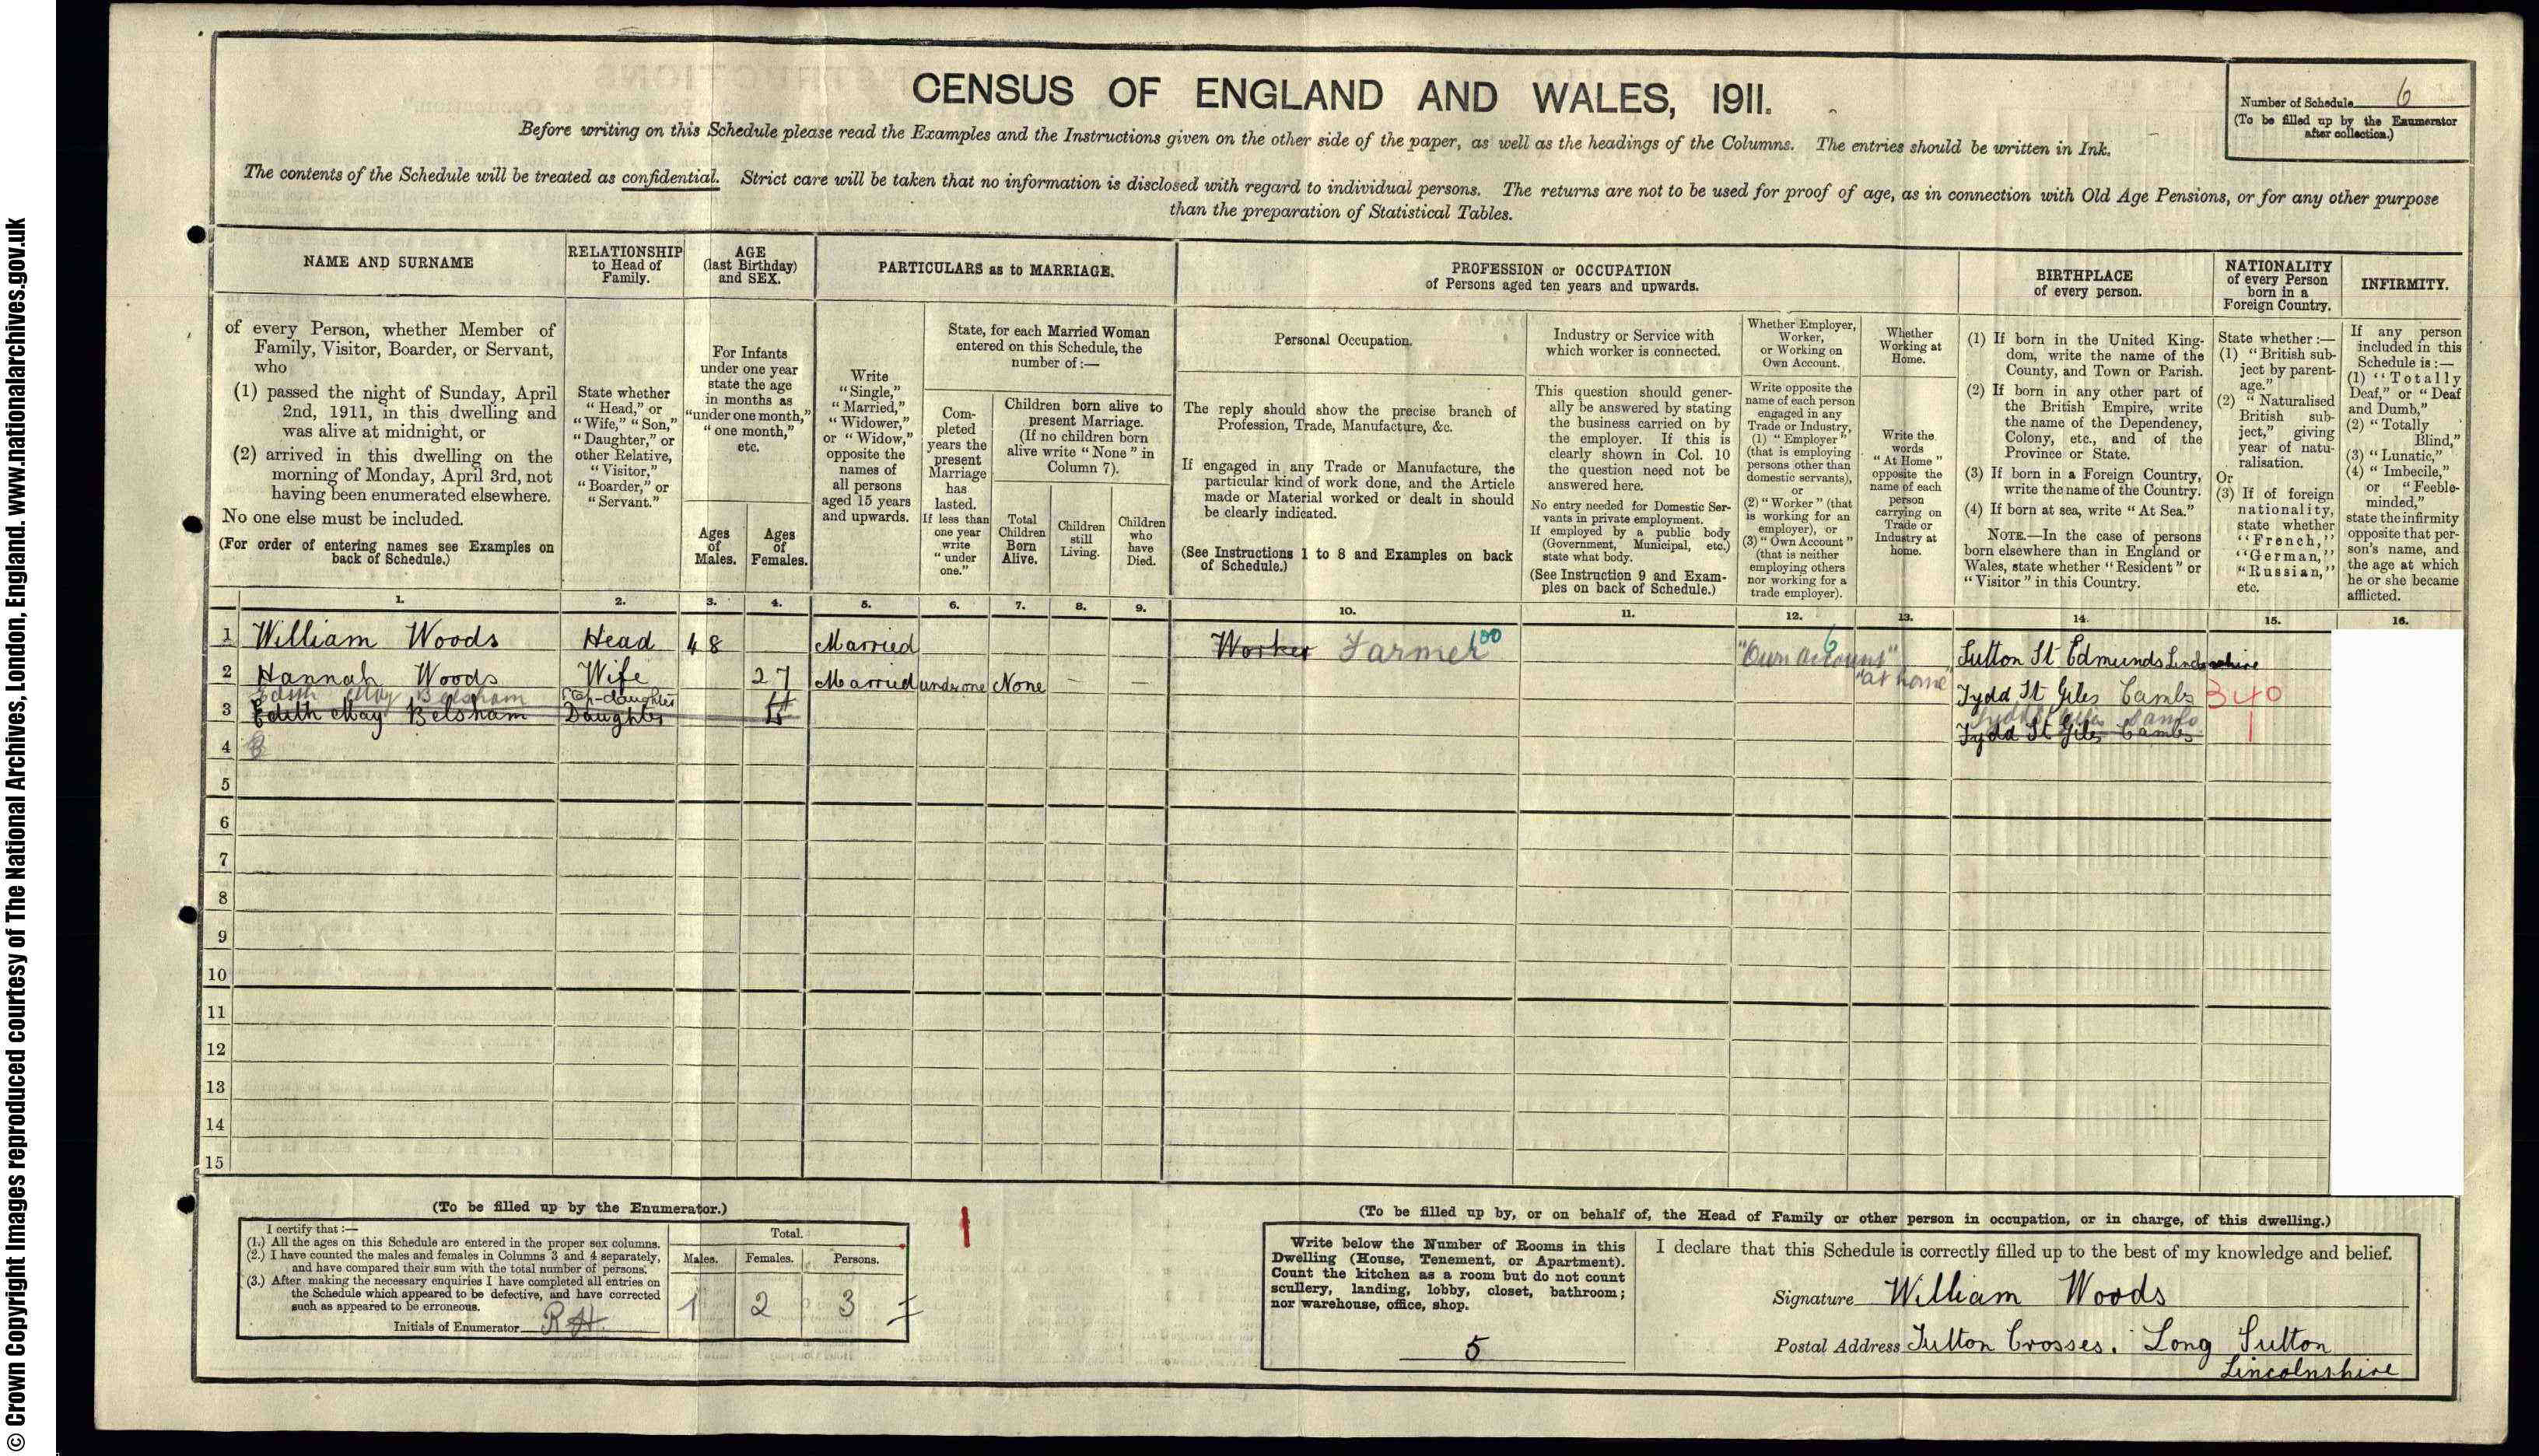 © Crown Copyright Images reproduced courtesy of The National Archives, London, England. www.nationalarchives.gov.uk
CENSUS OF ENGLAND AND WALES, 1911.
Number of Schedule 6
(To be filled up by the Enumerator
after collection.)
Before writing on this Schedule please read the Examples and the Instructions given on the other side of the paper, as well as the headings of the Columns. The entries should be written in Ink.
The contents of the Schedule will be treated as confidential. Strict care will be taken that no information is disclosed with regard to individual persons. The returns are not to be used for proof of age, as in connection with Old Age Pensions, or for any other purpose
than the preparation of Statistical Tables.
NAME AND SURNAME
of every Person, whether Member of
Family, Visitor, Boarder, or Servant,
who
(1) passed the night of Sunday, April
2nd, 1911, in this dwelling and
was alive at midnight, or
(2) arrived in this dwelling on the
morning of Monday, April 3rd, not
having been enumerated elsewhere.
No one else must be included.
(For order of entering names see Examples on
back of Schedule.)
RELATIONSHIP
to Head of
Family.
State whether
"Head," or
"Wife," "Son,"
"Daughter," or
other Relative,
"Visitor,"
"Boarder," or
"Servant."
AGE
(last Birthday)
and SEX.
For Infants
under one year
state the age
in months as
"under one month,"
"one month,"
etc.
Ages
of
Males.
Ages
of
Females.
PARTICULARS as to MARRIAGE.
Write
"Single,"
"Married,"
"Widower,"
or "Widow,"
opposite the
names of
all persons
aged 15 years
and upwards.
State, for each Married Woman
entered on this Schedule, the
number of:—
Com-
pleted
years the
present
Marriage
has
lasted.
If less than
one year
write
"under
one."
Children born alive to
present Marriage.
(If no children born
alive write "None" in
Column 7).
Total
Children
Born
Alive.
Children
still
Living.
Children
who
have
Died.
PROFESSION or OCCUPATION
of Persons aged ten years and upwards.
Personal Occupation.
The reply should show the precise branch of
Profession, Trade, Manufacture, &c.
If engaged in any Trade or Manufacture, the
particular kind of work done, and the Article
made or Material worked or dealt in should
be clearly indicated.
(See Instructions 1 to 8 and Examples on back
of Schedule.)
Industry or Service with
which worker is connected.
This question should gener-
ally be answered by stating
the business carried on by
the employer. If this is
clearly shown in Col. 10
the question need not be
answered here.
No entry needed for Domestic Ser-
vants in private employment.
If employed by a public body
(Government, Municipal, etc.)
state what body.
(See Instruction 9 and Exam-
ples on back of Schedule.)
Whether Employer,
Worker,
or Working on
Own Account.
Write opposite the
name of each person
engaged in any
Trade or Industry,
(1) "Employer"
(that is employing
persons other than
domestic servants),
or
(2) "Worker" (that
is working for an
employer), or
(3) "Own Account"
(that is neither
employing others
nor working for a
trade employer).
Whether
Working at
Home.
Write the
words
"At Home"
opposite the
name of each
person
carrying on
Trade or
Industry at
home.
BIRTHPLACE
of every person.
(1) If born in the United King-
dom, write the name of the
County, and Town or Parish.
(2) If born in any other part of
the British Empire, write
the name of the Dependency,
Colony, etc., and of the
Province or State.
(3) If born in a Foreign Country,
write the name of the Country.
(4) If born at sea, write "At Sea."
NOTE.—In the case of persons
born elsewhere than in England or
Wales, state whether "Resident" or
"Visitor" in this Country.
NATIONALITY
of every Person
born in a
Foreign Country.
State whether:—
(1) "British sub-
ject by parent-
age."
(2) "Naturalised
British sub-
ject," giving
year of natu-
ralisation.
Or
(3) If of foreign
nationality,
state whether
"French,"
"German,"
"Russian,"
etc.
INFIRMITY.
If any person
included in this
Schedule is:—
(1) "Totally
Deaf," or "Deaf
and Dumb,"
(2) "Totally
Blind,"
(3) "Lunatic,"
(4) "Imbecile,"
or "Feeble-
minded,"
state the infirmity
opposite that per-
son's name, and
the age at which
he or she became
afflicted.
1. 2. 3. 4. 5. 6. 7. 8. 9. 10. 11. 12. 13. 14. 15. 16.
1 William Woods Head 48 Married Worker Farmer 100 "Own Account" 6 "at home" Sutton St Edmunds Lincolnshire
2 Hannah Woods Wife 27 Married under one None — — Tydd St Giles Cambs 340
Edith May Belsham Step-daughter Tydd St Giles Cambs
3 Edith May Belsham Daughter Tydd St Giles Cambs 1
4
5
6
7
8
9
10
11
12
13
14
15
(To be filled up by the Enumerator.)
I certify that:—
(1.) All the ages on this Schedule are entered in the proper sex columns.
(2.) I have counted the males and females in Columns 3 and 4 separately,
and have compared their sum with the total number of persons.
(3.) After making the necessary enquiries I have completed all entries on
the Schedule which appeared to be defective, and have corrected
such as appeared to be erroneous.
Initials of Enumerator RH.
Total.
Males. Females. Persons.
1 2 3
1
(To be filled up by, or on behalf of, the Head of Family or other person in occupation, or in charge, of this dwelling.)
Write below the Number of Rooms in this
Dwelling (House, Tenement, or Apartment).
Count the kitchen as a room but do not count
scullery, landing, lobby, closet, bathroom;
nor warehouse, office, shop.
5
I declare that this Schedule is correctly filled up to the best of my knowledge and belief.
Signature William Woods
Postal Address Sutton Crosses. Long Sutton
Lincolnshire